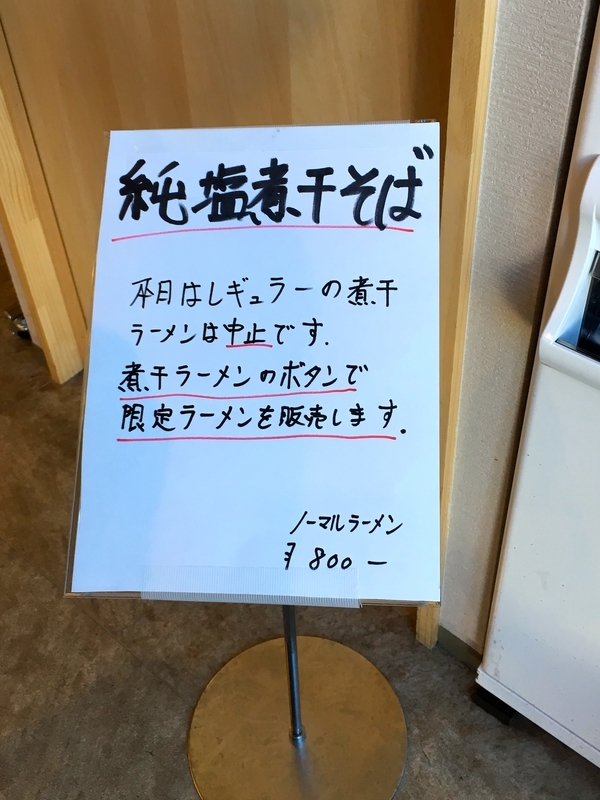 純塩煮干そば
本日はレギュラーの煮干
ラーメンは中止です.
煮干ラーメンのボタンで
限定ラーメンを販売します.
ノーマルラーメン
¥800ー